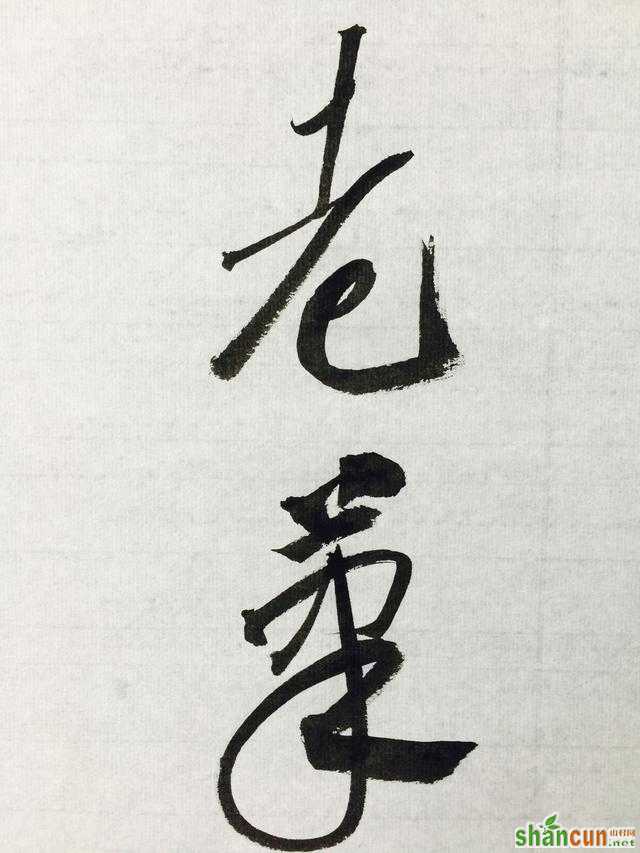 老
shancun 山村网
.net